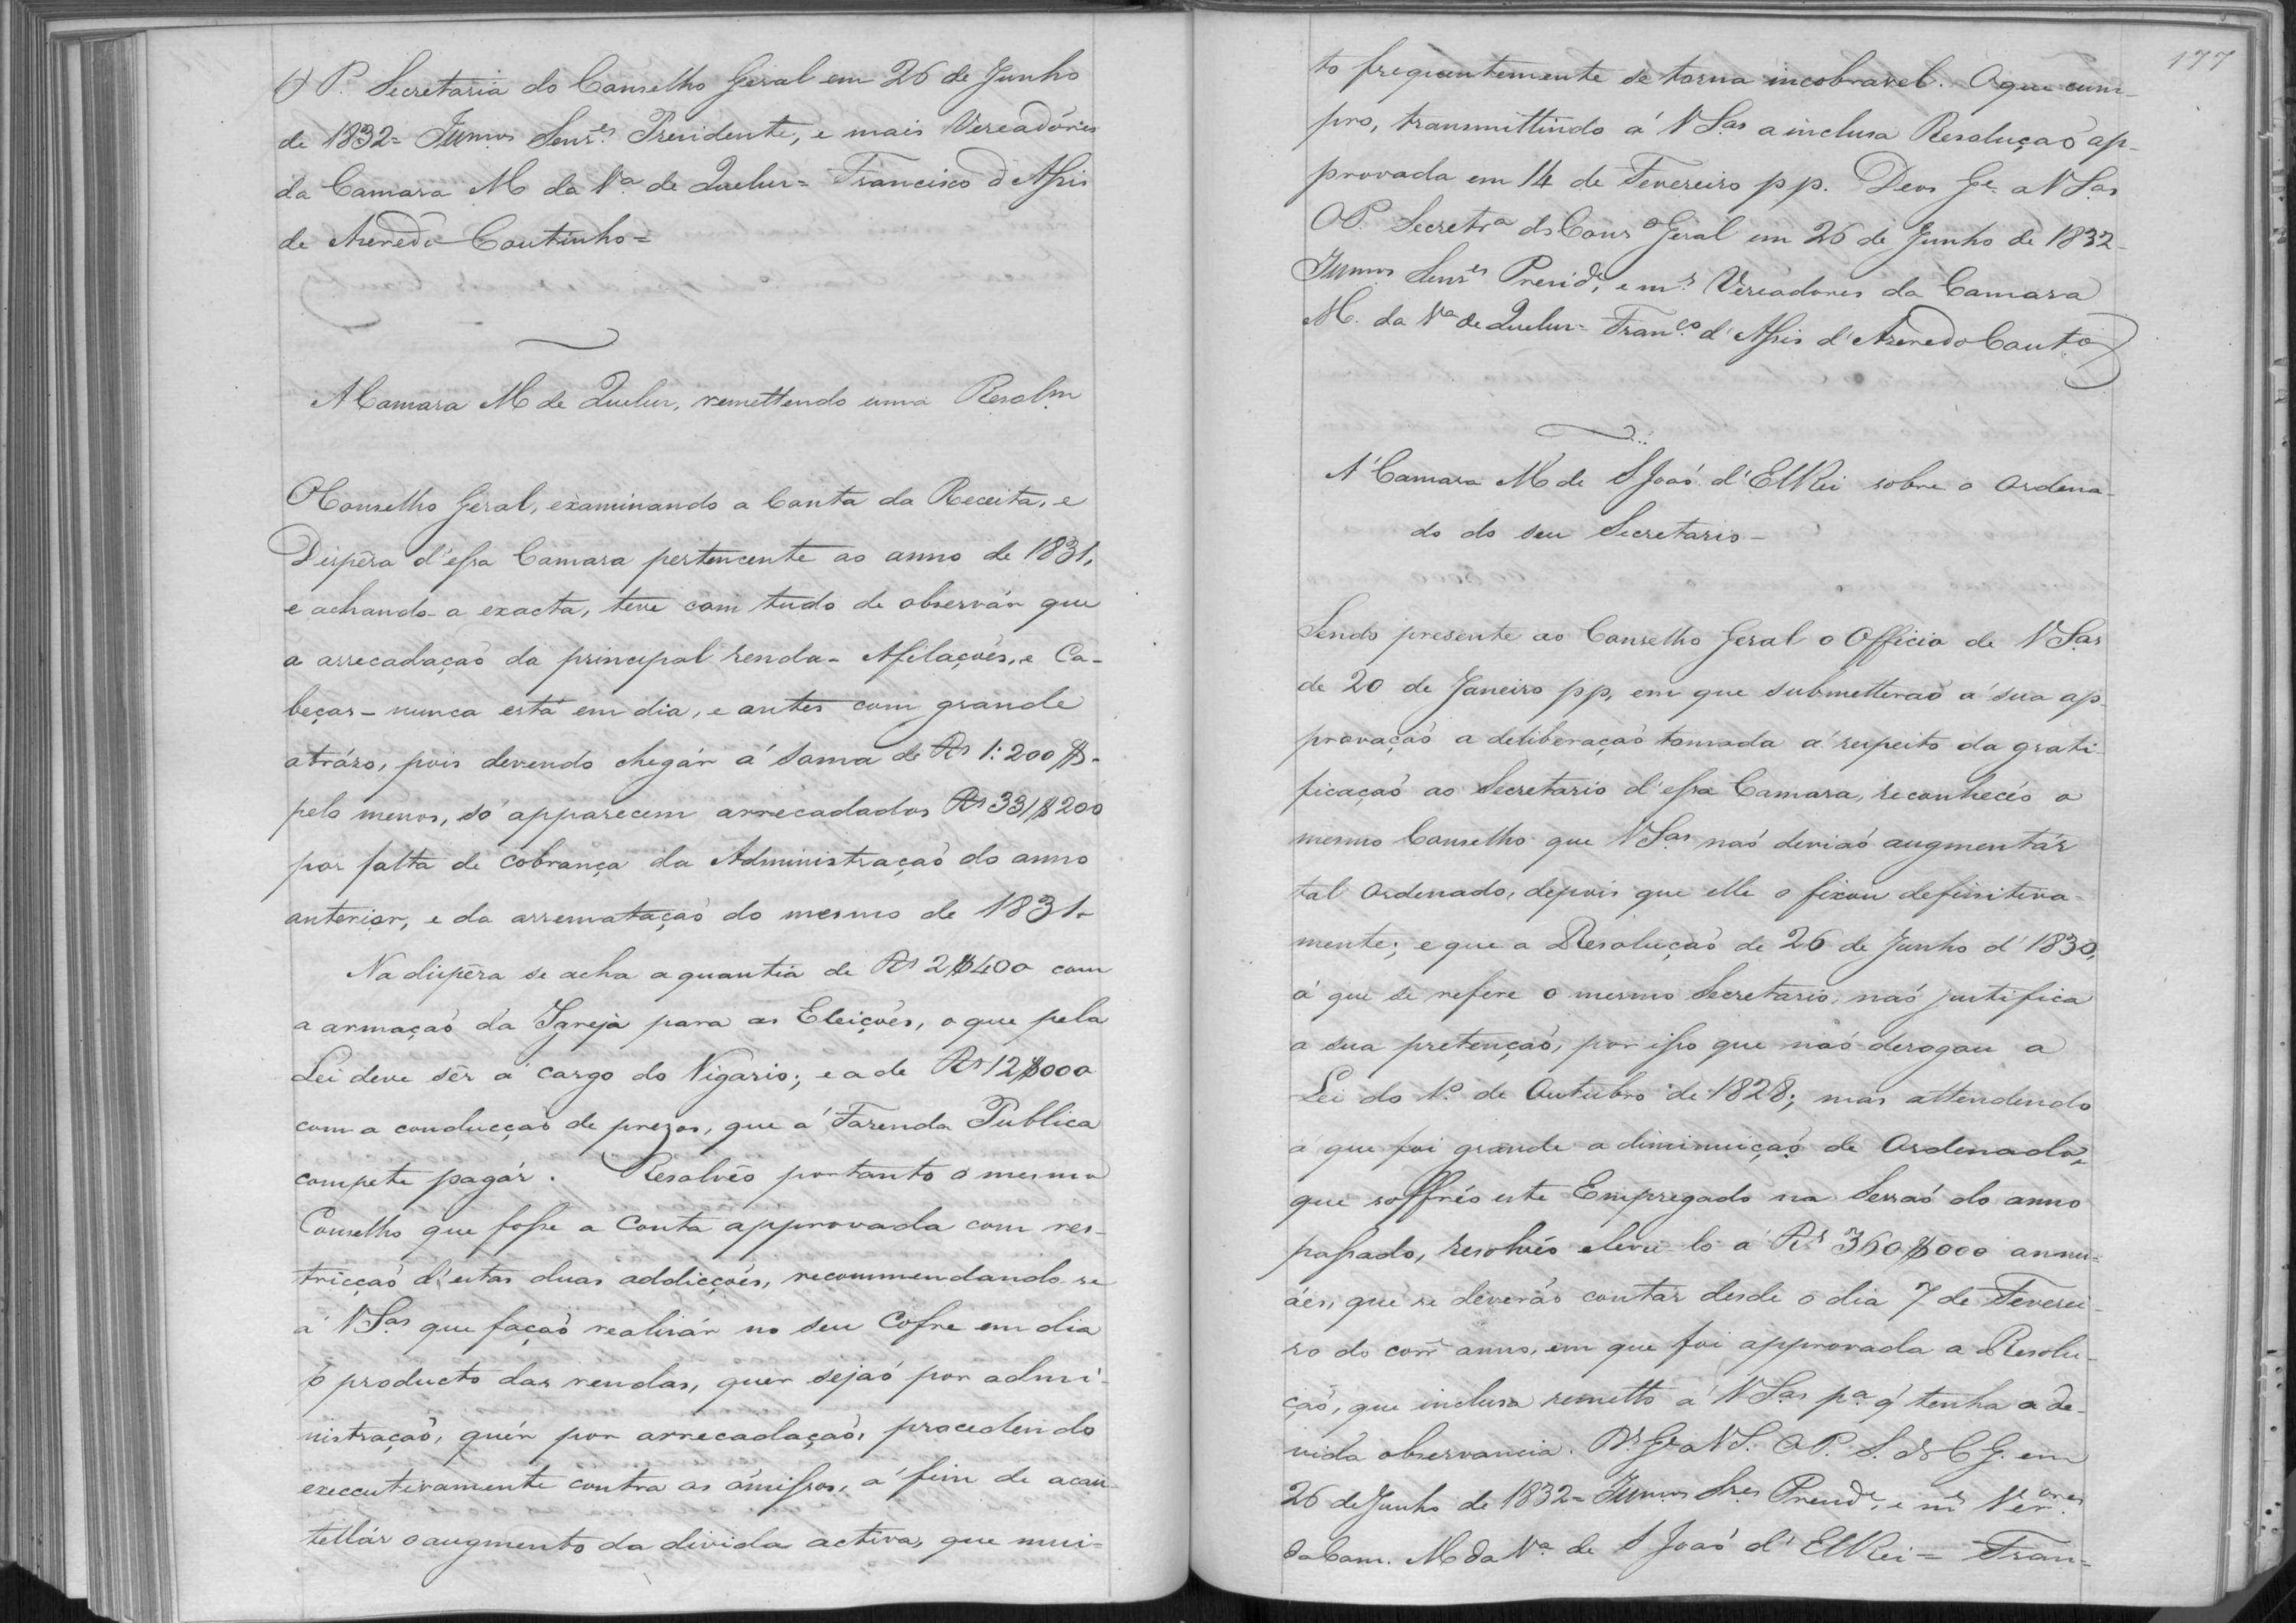 O P. Secretaria do Conselho Geral em 26 de Junho
de 1832= Illmos Senres Presidente, e mais Vereadores
da Camara M da Va de Queluz= Francisco d'Assis
de Azeredo Coutinho=
A Camara M de Queluz, remettendo uma Resolm
O Conselho Geral, examinando a Conta da Receita, e
Dispêza d'essa Camara pertencente ao anno de 1831,
e achando-a exacta, teve com tudo de observár que
a arrecadaçaõ da principal renda - Afilaçoẽs, e Ca-
beças - nunca está em dia, e antes com grande
atrázo, pois devendo chegár á soma de Rs 1:200$-
pelo menos, só apparecem arrecadados Rs 331$200
por falta de cobrança da Administraçaõ do anno
anterior, e da arremataçaõ do mesmo de 1831-
Na dispêza se acha a quantia de Rs 2$400 com
a armaçaõ da Igreja para as Eleiçoẽs, o que pela
Lei deve sêr a cargo do Vigario; e a de Rs 12$000
com a conducçaõ de prezos, que á Fazenda Publica
compete pagár. Resolvêo portanto o mesmo
Conselho que fosse a Conta approvada com res-
tricçaõ d'estas duas addicçoẽs, recommendando-se
á VSas que façaõ realizár no seu Cofre em dia
o producto das rendas, quer sejaõ por admi-
nistraçaõ, quér por arrecadaçaõ, procedendo
executivamente contra os ómissos, a fim de acau-
tellár o augmento da divida activa, que mui-
177
to frequentemente se torna incobravel. O que cum-
pro, transmittindo á VSas a inclusa Resoluçaõ ap-
provada em 14 de Fevereiro p p. Deos Ge a VSas
O P. Secretra do Conso Geral em 26 de Junho de 1832-
Illmos Senres Preside, e ms Vereadores da Camara
M. da Va de Queluz= Franco d'Assis d'Azeredo Couto
A' Camara M de S Joaõ d'ElRei sobre o Ordena-
do do seu Secretario-
Sendo presente ao Conselho Geral o Officio de VSas
de 20 de Janeiro pp, em que submetteraõ a sua ap-
provaçaõ a deliberaçaõ tomada a respeito da grati-
ficaçaõ ao Secretario d'essa Camara, reconhecêo o
mesmo Conselho que VSas naõ deviaõ augmentár
tal Ordenado, depois que elle o fixou definitiva-
mente; e que a Resoluçaõ de 26 de Junho d'1830,
a que se refere o mesmo Secretario, naõ justifica
a sua pretençaõ, por isso que naõ derogou a
Lei do 1o de Outubro de 1828; mas attendendo
a que foi grande a diminuiçaõ de Ordenado,
que soffrêo este Empregado na Sessaõ do anno
passado, resolvêo elevá-lo a Rs 360$000 annu-
áes, que se deveraõ contar desde o dia 7 de Feverei-
ro do corre anno, em que foi approvada a Resolu-
çaõ, que inclusa remetto á VSas pa q' tenha a de-
vida observancia. Ds Ge a VS. O P. S. do C G. em
26 de Junho de 1832= Illmos Sres Preside, e ms Verores
da Cam. M da Va de S Joaõ d'ElRei= Fran-